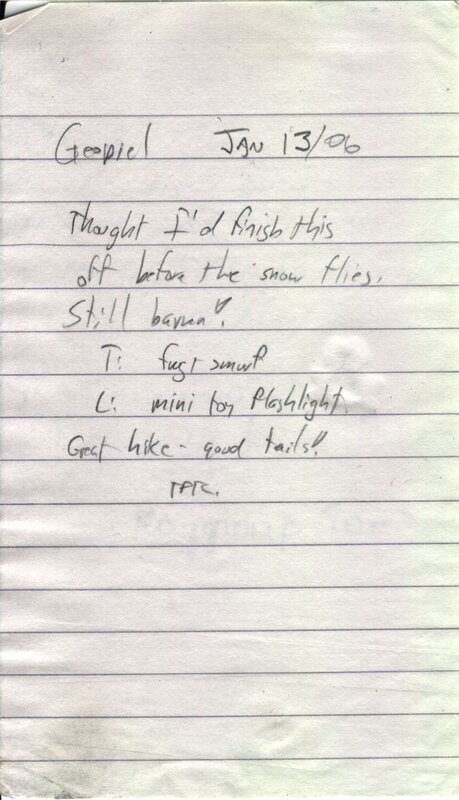 Geopiel JAN 13/06
Thought I'd finish this
off before the snow flies.
Still barren!
T: smurf
L: mini toy flashlight
Great hike - good tails!
TFTC.